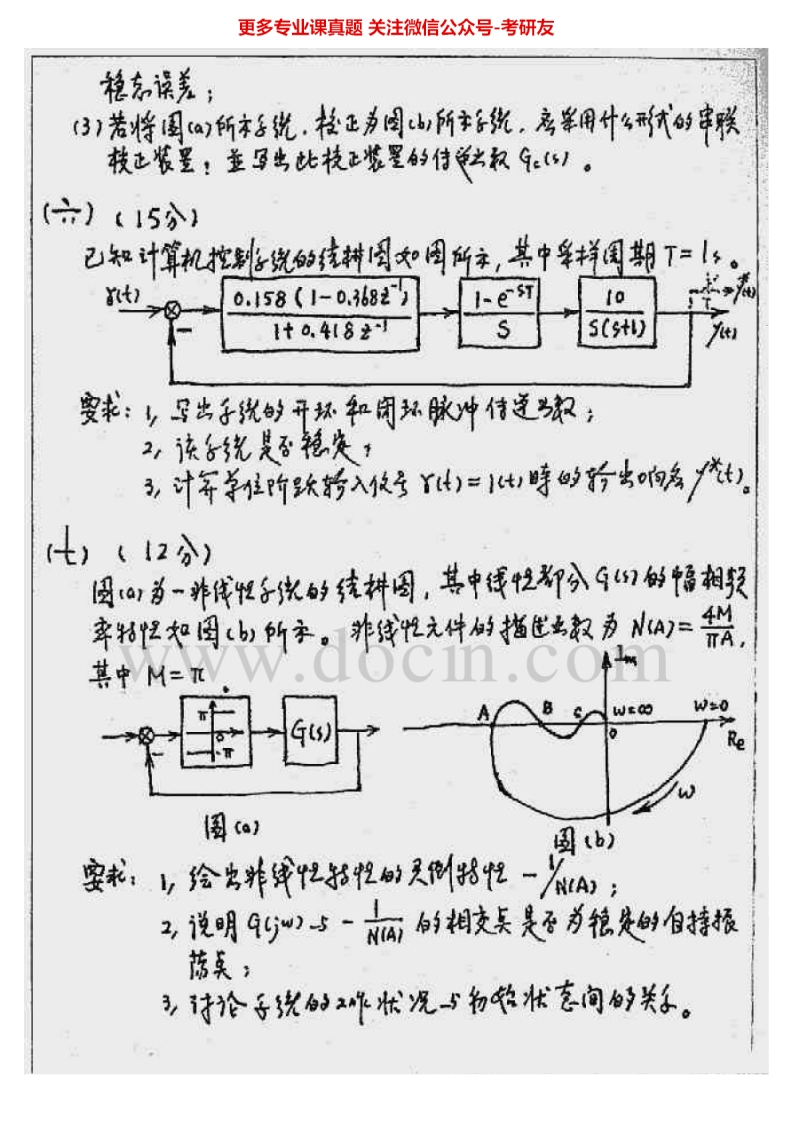 更多专业课真题 关注微信公众号-考研友
稳态误差；
(3) 若将图(a)所示系统，校正为图(b)所示系统，应采用什么形式的串联
校正装置；並写出此校正装置的传递函数 Gc(s)。
(六) (15分)
已知计算机控制系统的结构图如图所示，其中采样周期 T=1s。
r(t) 0.158(1-0.368z⁻¹) / 1+0.418z⁻¹ 1-e⁻ˢᵀ / S 10 / S(S+1) T y*(t)
− y(t)
要求：1, 写出系统的开环和闭环脉冲传递函数；
2, 该系统是否稳定；
3, 计算单位阶跃输入信号 r(t)=1(t) 時的输出响应 y*(t)。
(七) (12分)
图(a)为一非线性系统的结構图，其中线性部分G(s)的幅相频
率特性如图(b)所示。非线性元件的描述函数为 N(A)=4M/πA,
其中 M=π
www.docin.com
π 0 -π G(s) −
Im A B C ω=∞ ω=0 0 Re ω
图(a) 图(b)
要求：1, 绘出非线性特性的负倒特性 -1/N(A)；
2, 说明 G(jω)与 -1/N(A) 的相交点是否为稳定的自持振
荡点；
3, 讨论系统的工作状况与初始状态间的关系。